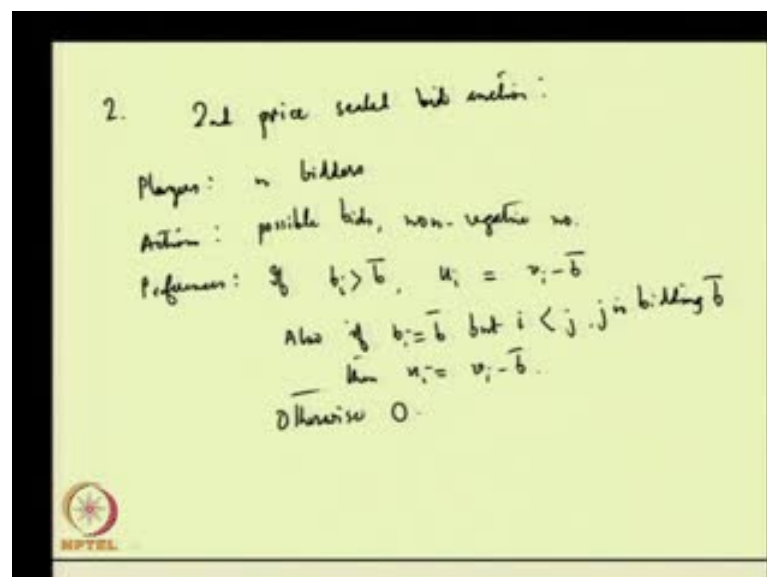 2. 2nd price sealed bid auction:
Players: n bidders
Action: possible bids, non-negative no.
Preferences: If bi > b̅, ui = vi - b̅
Also if bi = b̅ but i < j, j is bidding b̅
then ui = vi - b̅.
Otherwise 0.
NPTEL